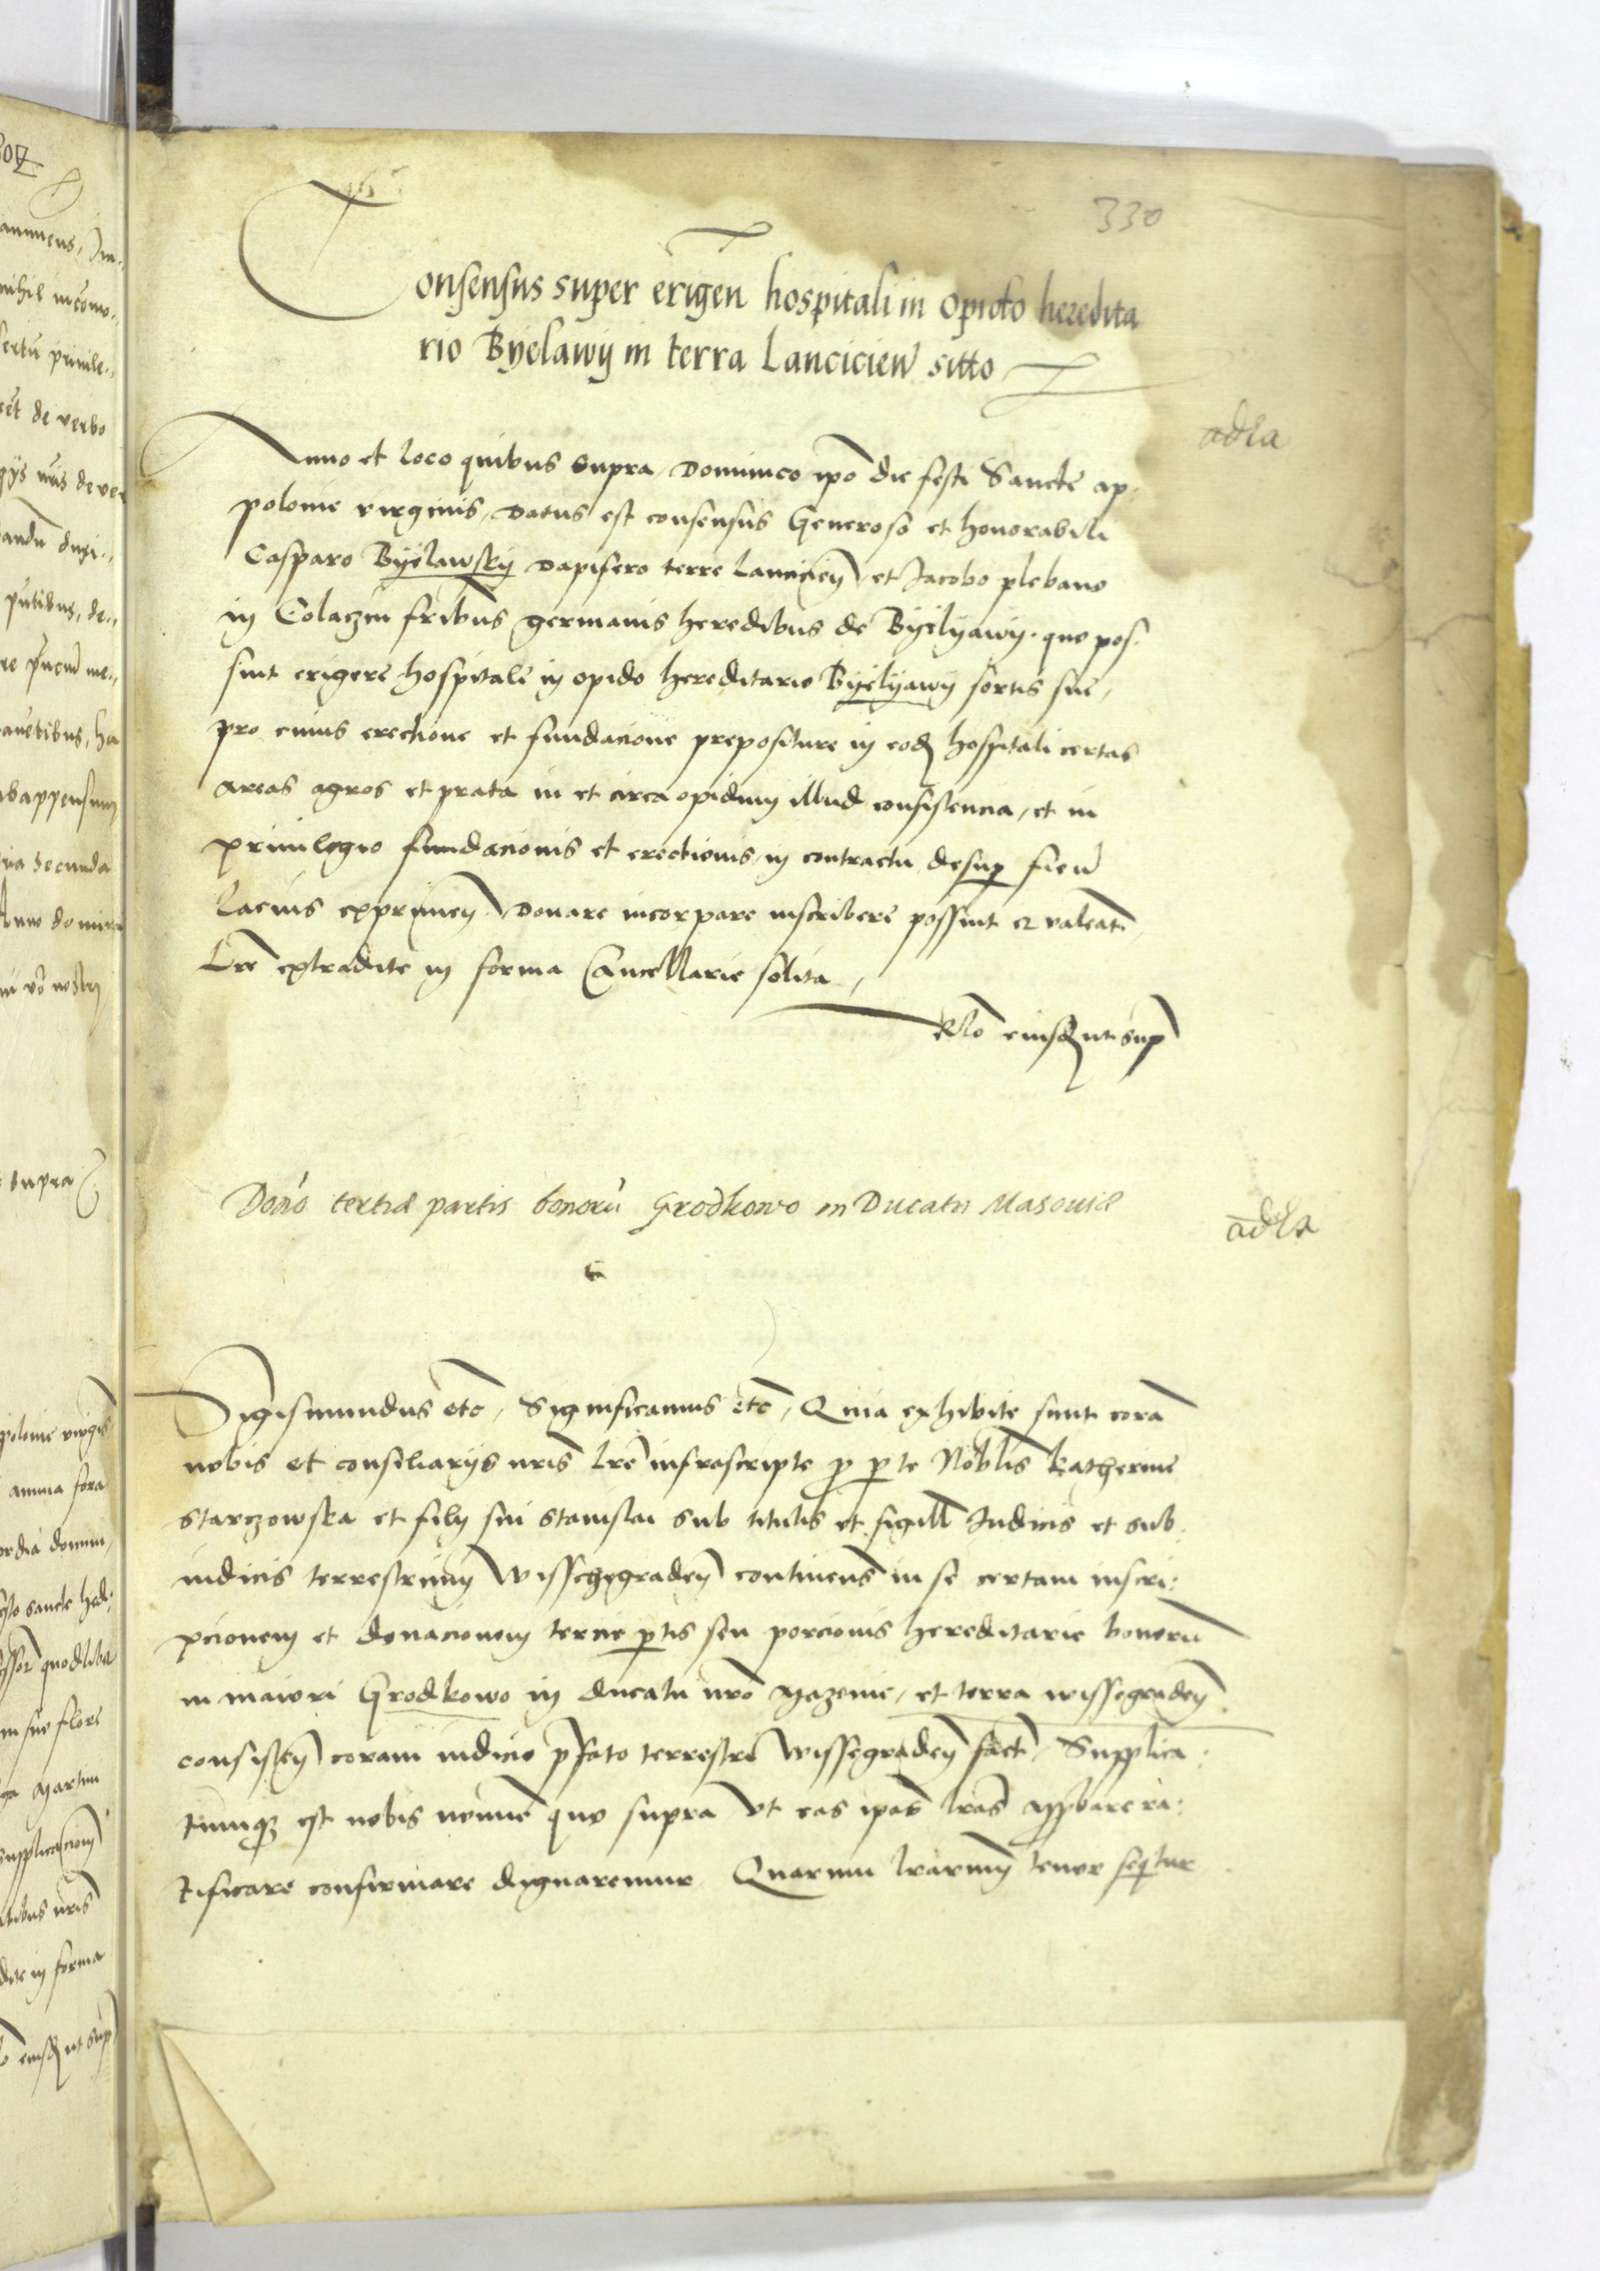 330
Consensus super erigen hospitali in opido heredita
rio Byelawy in terra Lancicien sitto
adla
Anno et loco quibus supra Dominico ipo die festi Sancte ap
polonie virginis, Datus est consensus Generoso et honorabili
Casparo Byelawsky Dapifero terre Lancicien et Jacobo plebano
in Colaczin fribus germanis heredibus de Byelyawy. quo pos
sint erigere hospitale in opido hereditario Byelyawy sortis sue,
pro cuius erectione et fundacione prepositure in eod hospitali certas
areas agros et prata in et circa opidum illud consistencia, et in
privilegio fundacionis et erectionis, in contractu desup fien
lacius exprimen Donare incorpare inscribere possint et valeat
Lre extradite in forma Cancellarie solita,
Rlo eiusd ut sup
Donio tertiæ partis bonoru Grodkowo in Ducatu Masoviæ
adla
Sigismundus etc, Significamus etc, Quia exhibite sunt cora
nobis et consiliarys nris lre infrascripte p pte Noblis Katherine
starczowska et fily sui stanislai sub titulis et sigill Iudicis et sub
iudicis terrestrium Wissegraden continens in se certam inscri
pcionem et donacionem tercie ptis seu porcionis hereditarie bonoru
in maiori Grodkowo in ducatu nro Mazovie, et terra wissegraden
consisten coram iudicio pfato terrestri Wissegraden fact, Supplica
tumq est nobis nomine quo supra Ut eas ipas lras approbare ra
tificare confirmare dignaremur Quarum lrarum tenor sequitur